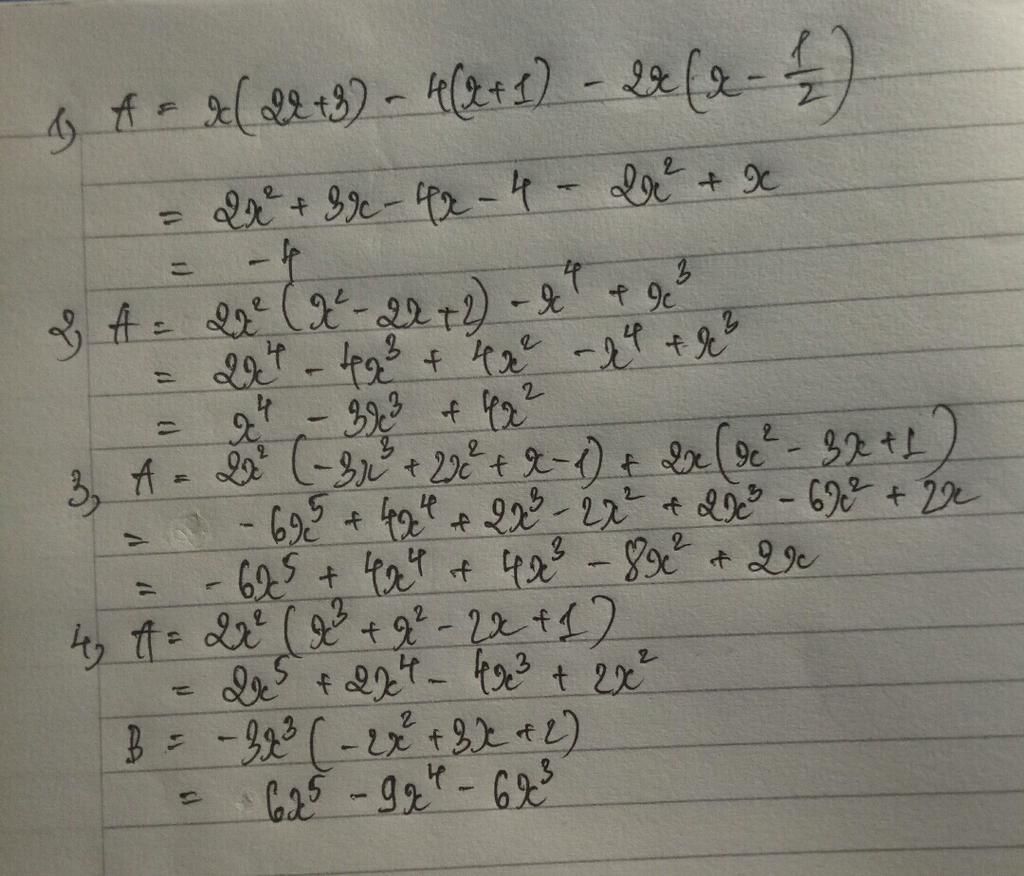 1, A = x(2x+3) - 4(x+1) - 2x(x - 1/2)
= 2x² + 3x - 4x - 4 - 2x² + x
= -4
2, A = 2x²(x² - 2x + 2) - x⁴ + x³
= 2x⁴ - 4x³ + 4x² - x⁴ + x³
= x⁴ - 3x³ + 4x²
3, A = 2x²(-3x³ + 2x² + x - 1) + 2x(x² - 3x + 1)
= -6x⁵ + 4x⁴ + 2x³ - 2x² + 2x³ - 6x² + 2x
= -6x⁵ + 4x⁴ + 4x³ - 8x² + 2x
4, A = 2x²(x³ + x² - 2x + 1)
= 2x⁵ + 2x⁴ - 4x³ + 2x²
B = -3x³(-2x² + 3x + 2)
= 6x⁵ - 9x⁴ - 6x³